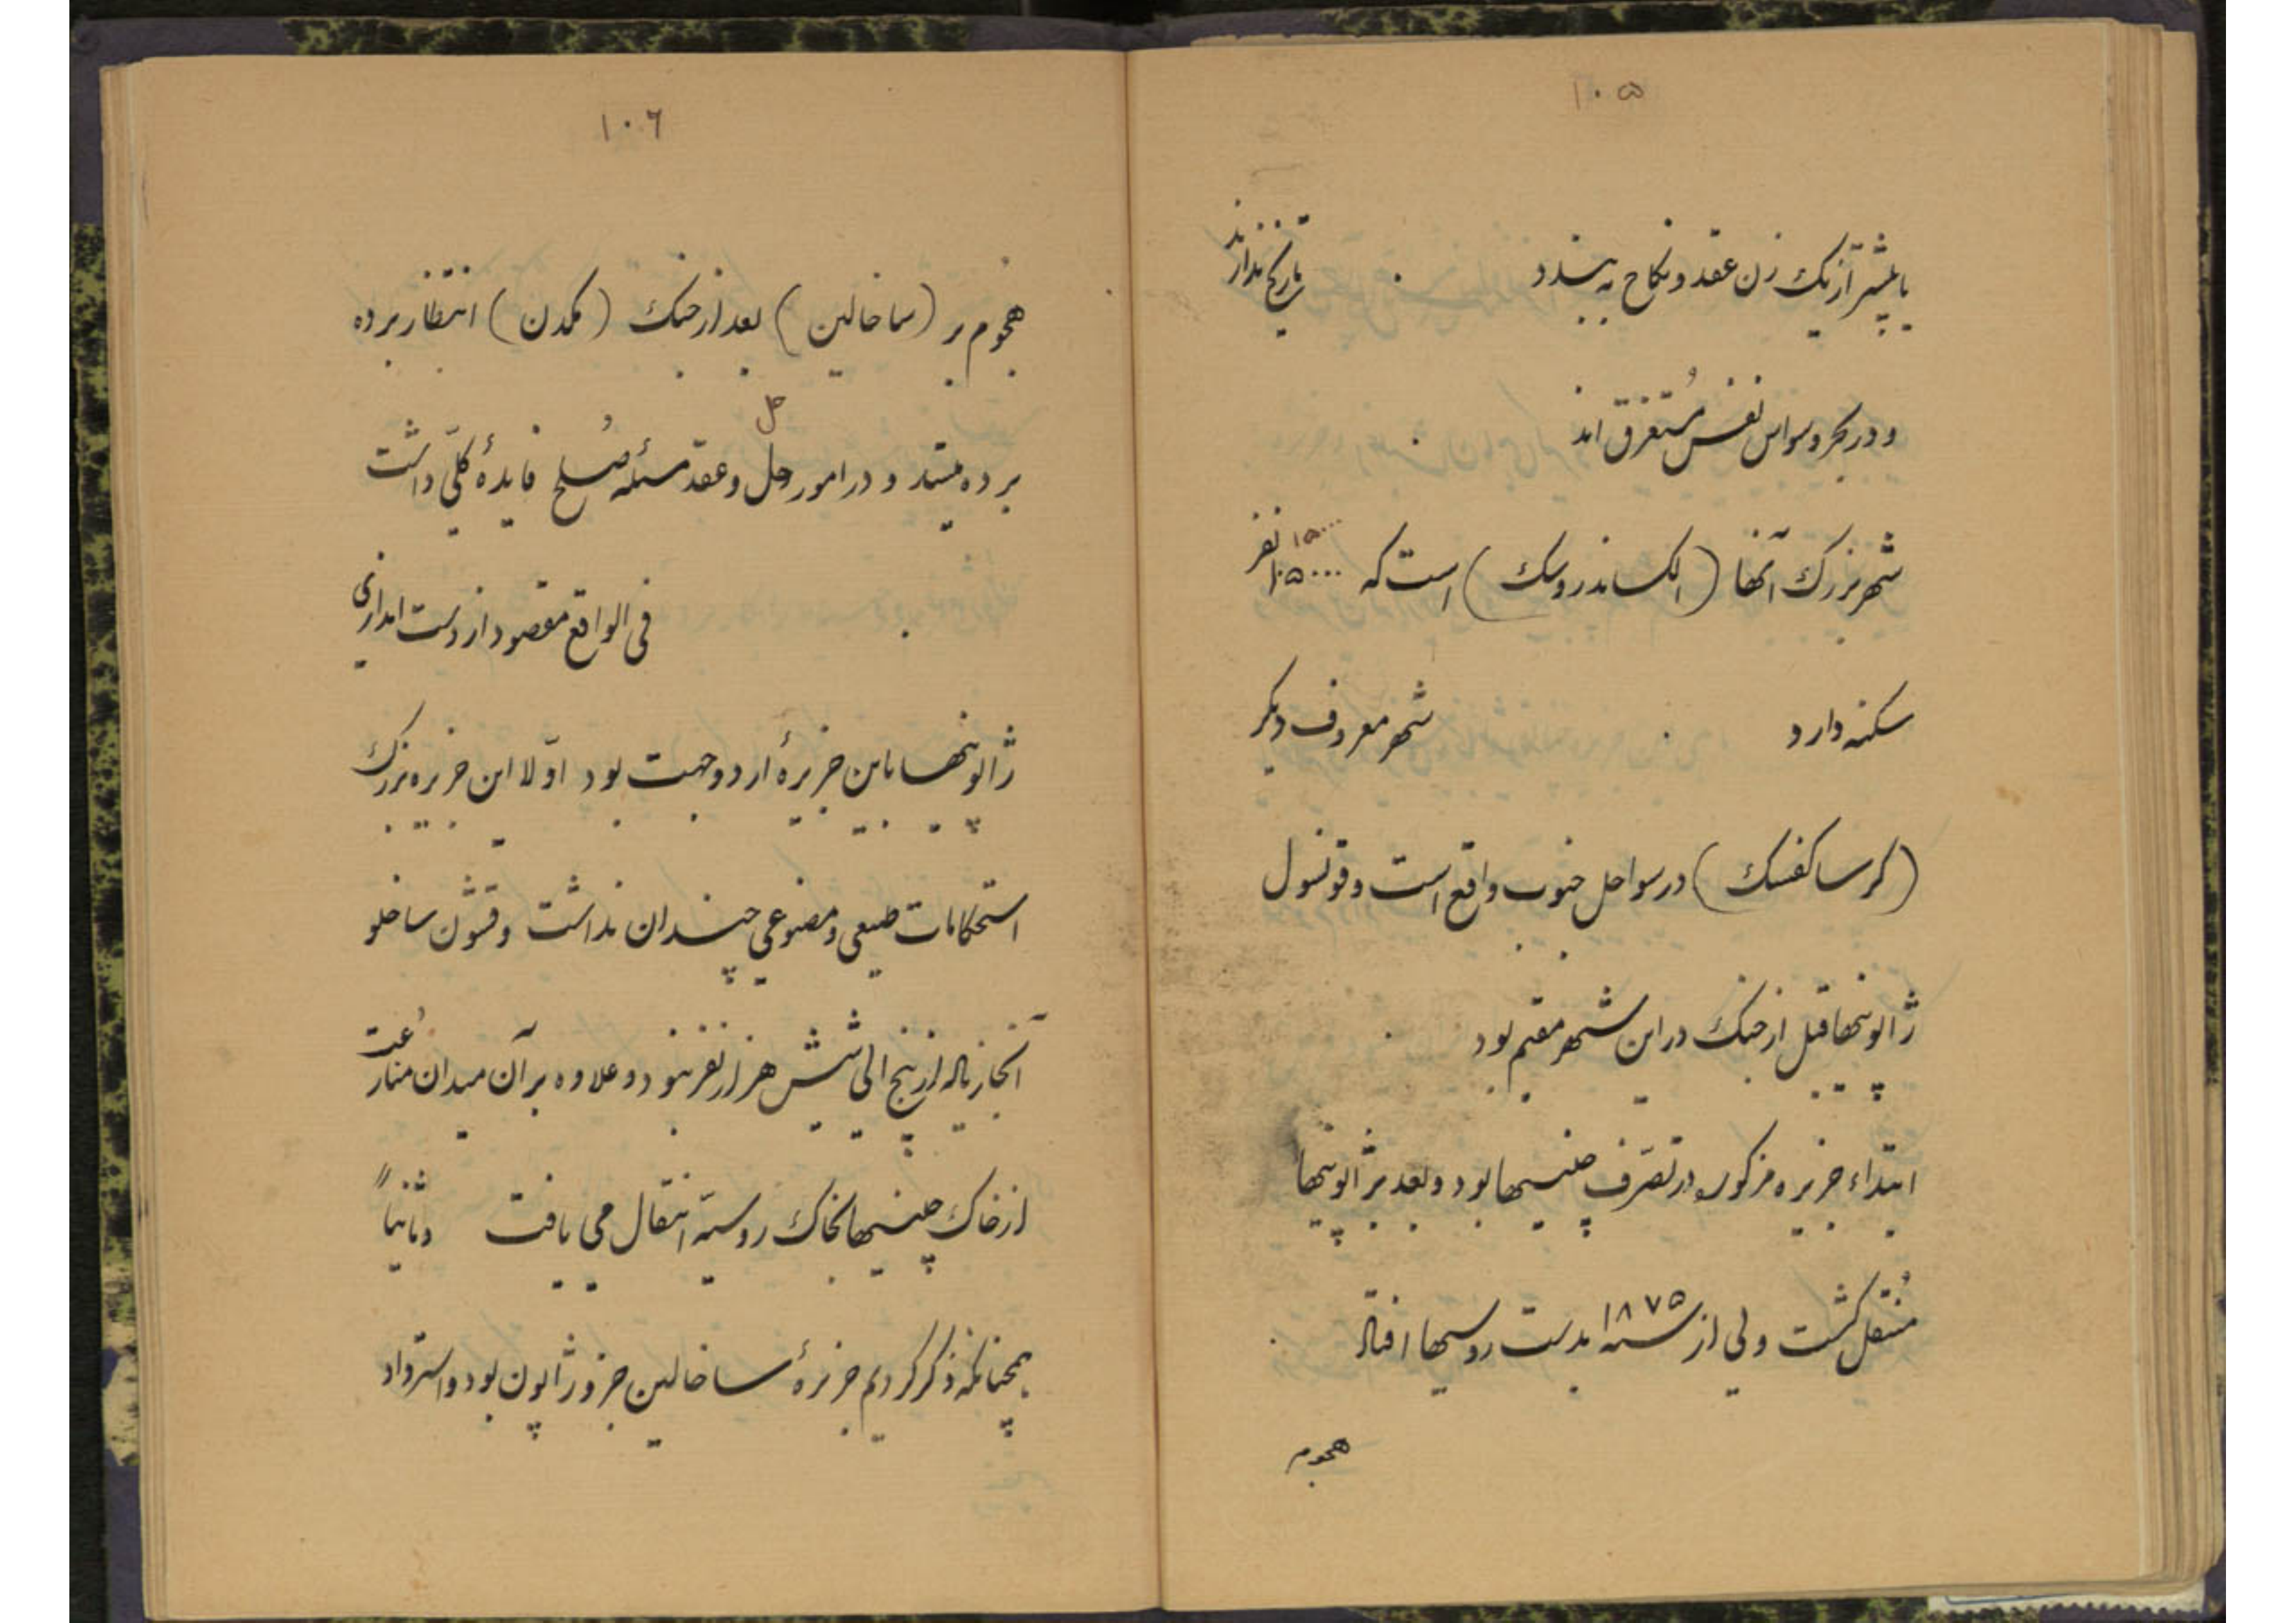 ۱۰۵
یا بیشتر از یک زن عقد و نکاح به بندد . تاریخ ندارند
و در بحر وسواس نفس مُستغرق اند .
شهر بزرک آنها (الکساندروسک) است که ۱۵۰۰۰ نفر
سکنه دارد . شهر معروف دیکر
(کرساکفسک) در سواحل جنوب واقع است و قونسول
ژاپونیها قبل از جنک در این شهر مقیم بود .
ابتداء جزیره مزکور در تصرّف چینیها بود و بعد بژاپونیها
مُنتقل کشت ولی از سنه ۱۸۷۵ بدست روسیها افتاد .
هجوم
۱۰۶
هجوم بر (ساخالین) بعد از جنک (مکدن) انتظار برده
برده میشد و در امور حل و عقد مسئله صُلح فایدهٔ کلّی داشت
. فی الواقع مقصود از دست اندازی
ژاپونیها باین جزیرهٔ از دو جهت بود اوّلا این جزیره بزرک
استحکامات طبیعی و مصنوعی چندان نداشت و قشون ساخلو
آنجا زیاله از پنج الی شیش هزار نفر نبود و علاوه بر آن میدان منازعت
از خاک چینیها بخاک روسیّه انتقال می یافت وثانیاً
همچنانکه ذکر کردیم جزیرهٔ ساخالین جزو ژاپون بود و استرداد